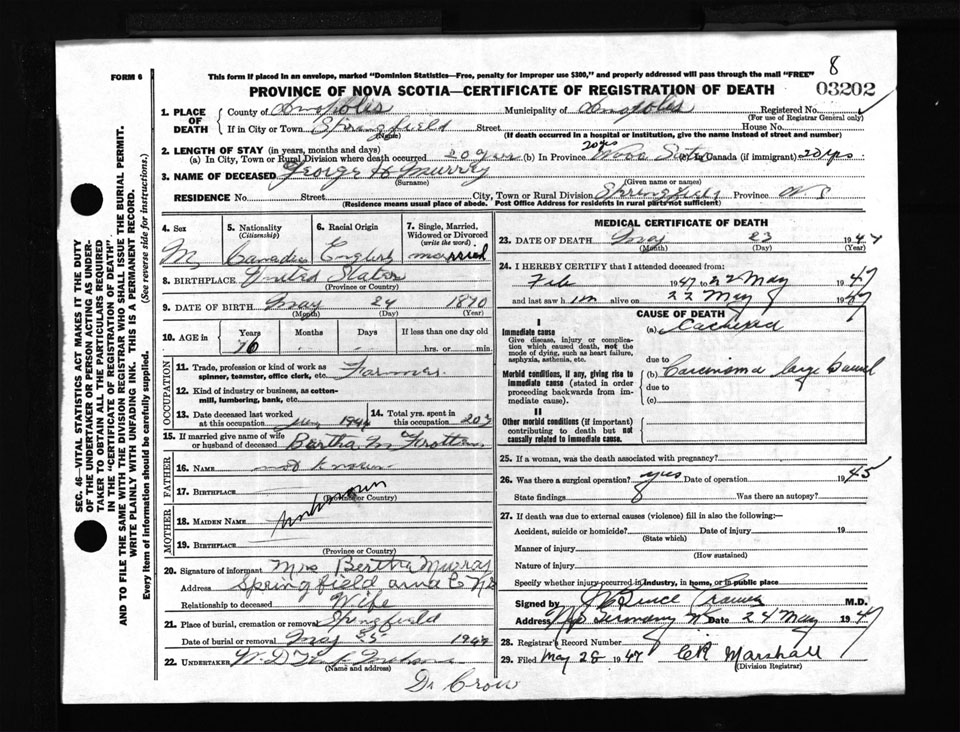 8
FORM 6
This form if placed in an envelope, marked "Dominion Statistics—Free, penalty for improper use $300," and properly addressed will pass through the mail "FREE"
03202
PROVINCE OF NOVA SCOTIA—CERTIFICATE OF REGISTRATION OF DEATH
1. PLACE OF DEATH
County of Annapolis Municipality of Annapolis Registered No.
(For use of Registrar General only)
If in City or Town Springfield Street House No.
(Name) (If death occurred in a hospital or institution, give the name instead of street and number)
2. LENGTH OF STAY (in years, months and days)
(a) In City, Town or Rural Division where death occurred 20 yrs (b) In Province 20 yrs Nova Scotia (c) In Canada (if immigrant) 20 yrs.
3. NAME OF DECEASED George H Murray
(Surname) (Given name or names)
RESIDENCE No. Street City, Town or Rural Division Springfield Province N S
(Residence means usual place of abode. Post Office Address for residents in rural parts not sufficient)
4. Sex
M
5. Nationality
(Citizenship)
Canadian
6. Racial Origin
English
7. Single, Married, Widowed or Divorced
(write the word)
married
8. BIRTHPLACE United States
(Province or Country)
9. DATE OF BIRTH May 24 1870
(Month) (Day) (Year)
10. AGE in Years Months Days If less than one day old
76 - - hrs. or min.
OCCUPATION
11. Trade, profession or kind of work as spinner, teamster, office clerk, etc. Farmer
12. Kind of industry or business, as cotton-mill, lumbering, bank, etc.
13. Date deceased last worked at this occupation 1946
14. Total yrs. spent in this occupation 20 y
15. If married give name of wife or husband of deceased Bertha M
FATHER
16. NAME not known
17. BIRTHPLACE
(Province or Country)
unknown
MOTHER
18. MAIDEN NAME
19. BIRTHPLACE
(Province or Country)
20. Signature of informant Mrs Bertha Murray
Address Springfield anna C NS
Relationship to deceased Wife
21. Place of burial, cremation or removal Springfield
Date of burial or removal May 25 1947
22. UNDERTAKER W. D
(Name and address)
Dr Crow
MEDICAL CERTIFICATE OF DEATH
23. DATE OF DEATH May 23 1947
(Month) (Day) (Year)
24. I HEREBY CERTIFY that I attended deceased from:
Feb 1947 to 22 May 1947
and last saw him alive on 22 May 1947
CAUSE OF DEATH
I
Immediate cause
Give disease, injury or complication which caused death, not the mode of dying, such as heart failure, asphyxia, asthenia, etc.
(a) Cachexia
due to
Morbid conditions, if any, giving rise to immediate cause (stated in order proceeding backwards from immediate cause).
(b) Carcinoma large bowel
due to
(c)
II
Other morbid conditions (if important) contributing to death but not causally related to immediate cause.
25. If a woman, was the death associated with pregnancy?
26. Was there a surgical operation? yes Date of operation 1945
State findings Was there an autopsy?
27. If death was due to external causes (violence) fill in also the following:—
Accident, suicide or homicide? Date of injury 19
(State which)
Manner of injury
(How sustained)
Nature of injury
Specify whether injury occurred in industry, in home, or in public place
Signed by M.D.
Address New Germany NS Date 24 May 1947
28. Registrar's Record Number
29. Filed May 28 1947 CR Marshall
(Division Registrar)
SEC. 46—VITAL STATISTICS ACT MAKES IT THE DUTY
OF THE UNDERTAKER OR PERSON ACTING AS UNDER-
TAKER TO OBTAIN ALL THE PARTICULARS REQUIRED
IN THE "CERTIFICATE OF REGISTRATION OF DEATH"
AND TO FILE THE SAME WITH THE DIVISION REGISTRAR WHO SHALL ISSUE THE BURIAL PERMIT.
WRITE PLAINLY WITH UNFADING INK. THIS IS A PERMANENT RECORD.
Every item of information should be carefully supplied. (See reverse side for instructions.)